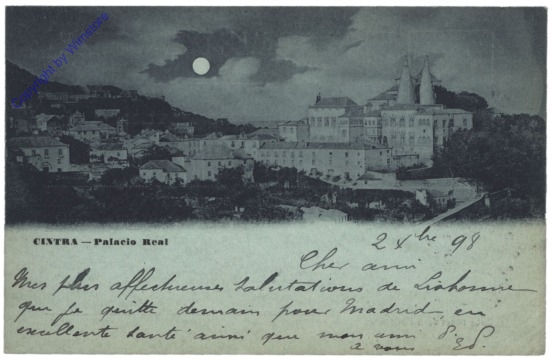 Copyright by Winadore
CINTRA — Palacio Real
2 Xbre 98
Cher ami
Mes plus affectueuses salutations de Lisbonne
que je quitte demain pour Madrid, en
excellente santé ainsi que mon ami
à vous